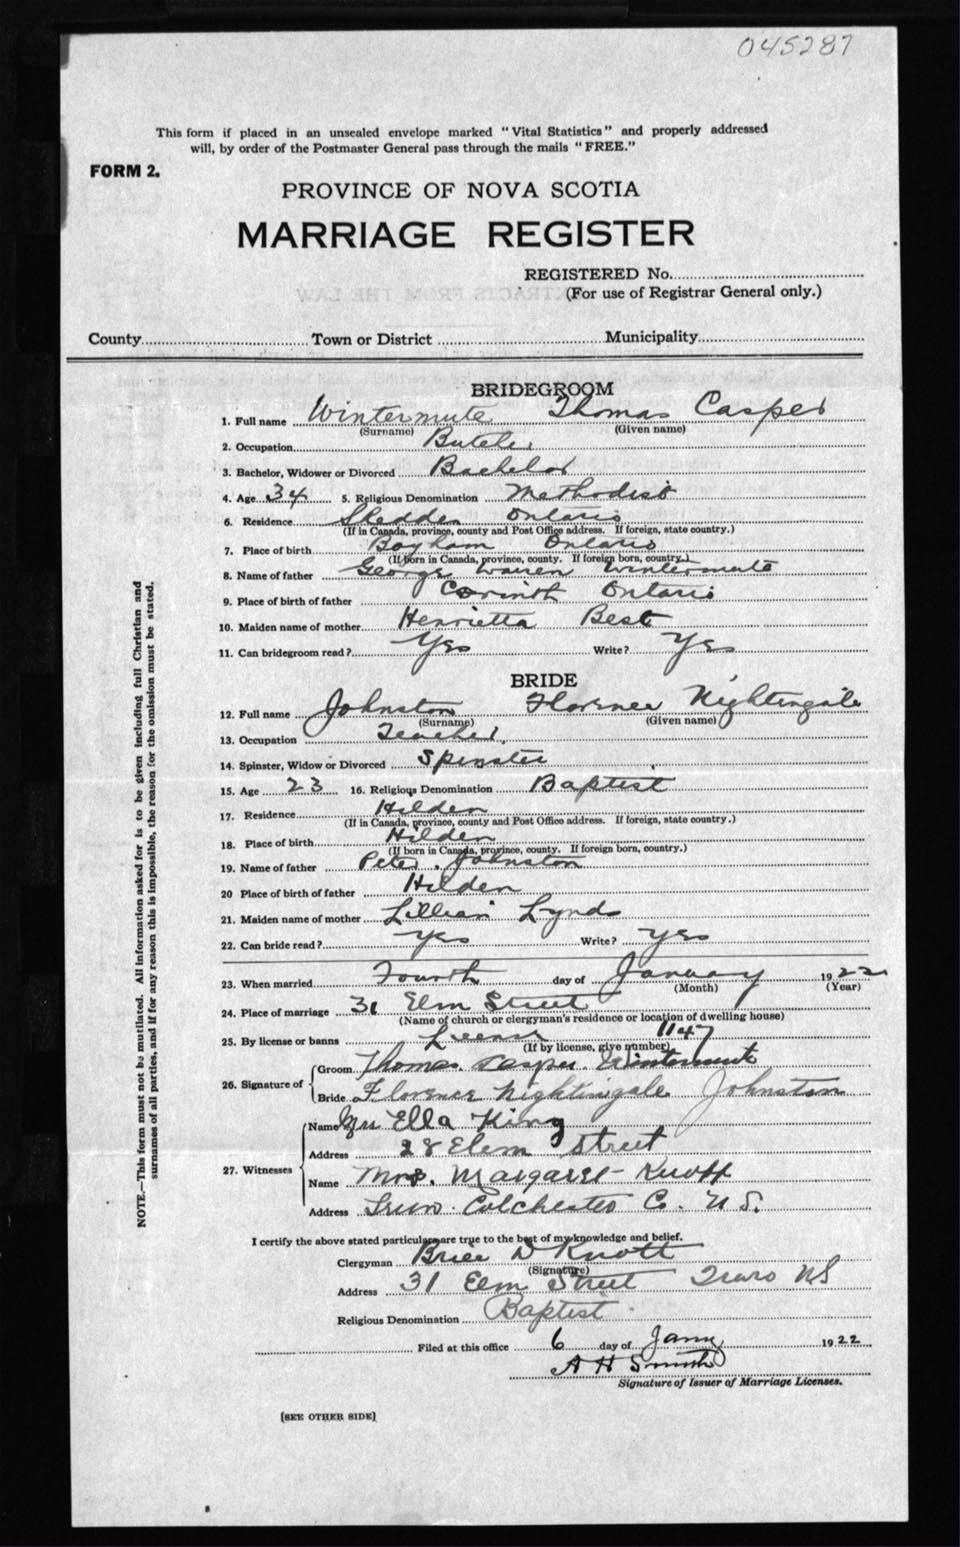 045287
This form if placed in an unsealed envelope marked "Vital Statistics" and properly addressed
will, by order of the Postmaster General pass through the mails "FREE."
FORM 2.
PROVINCE OF NOVA SCOTIA
MARRIAGE REGISTER
REGISTERED No.
(For use of Registrar General only.)
County Town or District Municipality
BRIDEGROOM
1. Full name Wintermute Thomas Casper
(Surname) (Given name)
2. Occupation Butcher
3. Bachelor, Widower or Divorced Bachelor
4. Age 34 5. Religious Denomination Methodist
6. Residence Shedden Ontario
(If in Canada, province, county and Post Office address. If foreign, state country.)
7. Place of birth Bayham Ontario
(If born in Canada, province, county. If foreign born, country.)
8. Name of father George Warren Wintermute
9. Place of birth of father Corinth Ontario
10. Maiden name of mother Henrietta Best
11. Can bridegroom read? Yes Write? Yes
BRIDE
12. Full name Johnston Florence Nightingale
(Surname) (Given name)
13. Occupation Teacher
14. Spinster, Widow or Divorced Spinster
15. Age 23 16. Religious Denomination Baptist
17. Residence Hilden
(If in Canada, province, county and Post Office address. If foreign, state country.)
18. Place of birth Hilden
(If born in Canada, province, county. If foreign born, country.)
19. Name of father Peter Johnston
20 Place of birth of father Hilden
21. Maiden name of mother Lillian Lynds
22. Can bride read? Yes Write? Yes
23. When married Fourth day of January 1922
(Month) (Year)
24. Place of marriage 31 Elm Street
(Name of church or clergyman's residence or location of dwelling house)
25. By license or banns License 1147
(If by license, give number)
26. Signature of Groom Thomas Casper Wintermute
Bride Florence Nightingale Johnston
27. Witnesses Name Ella King
Address 28 Elem Street
Name Mrs. Margaret Knott
Address Truro Colchester Co. N.S.
I certify the above stated particulars are true to the best of my knowledge and belief.
Clergyman Brice D Knott
(Signature)
Address 31 Elm Street Truro NS
Religious Denomination Baptist
Filed at this office 6 day of Jany 1922
A H Smith
Signature of Issuer of Marriage Licenses.
[SEE OTHER SIDE]
NOTE.—This form must not be mutilated. All information asked for is to be given including full Christian and
surnames of all parties, and if for any reason this is impossible, the reason for the omission must be stated.